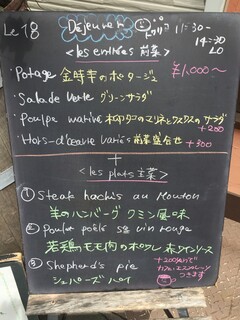 Le 18 Déjeuner 11:30~
14:30
LO
<les entrées 前菜>
・Potage 金時芋のポタージュ ¥1,000~
・Salade verte グリーンサラダ
・Poulpe mariné のマリネとクスクスのサラダ
+200
・Hors-d'œuvre variés 前菜盛合せ +300
+
<les plats 主菜>
① Steak hachis au Mouton
羊のハンバーグ クミン風味
② Poulet poêlé sa vin rouge
若鶏モモ肉のポワレ 赤ワインソース
③ Shepherd's pie
シェパーズパイ
+200
カフェ・エスプレッソ
つきます